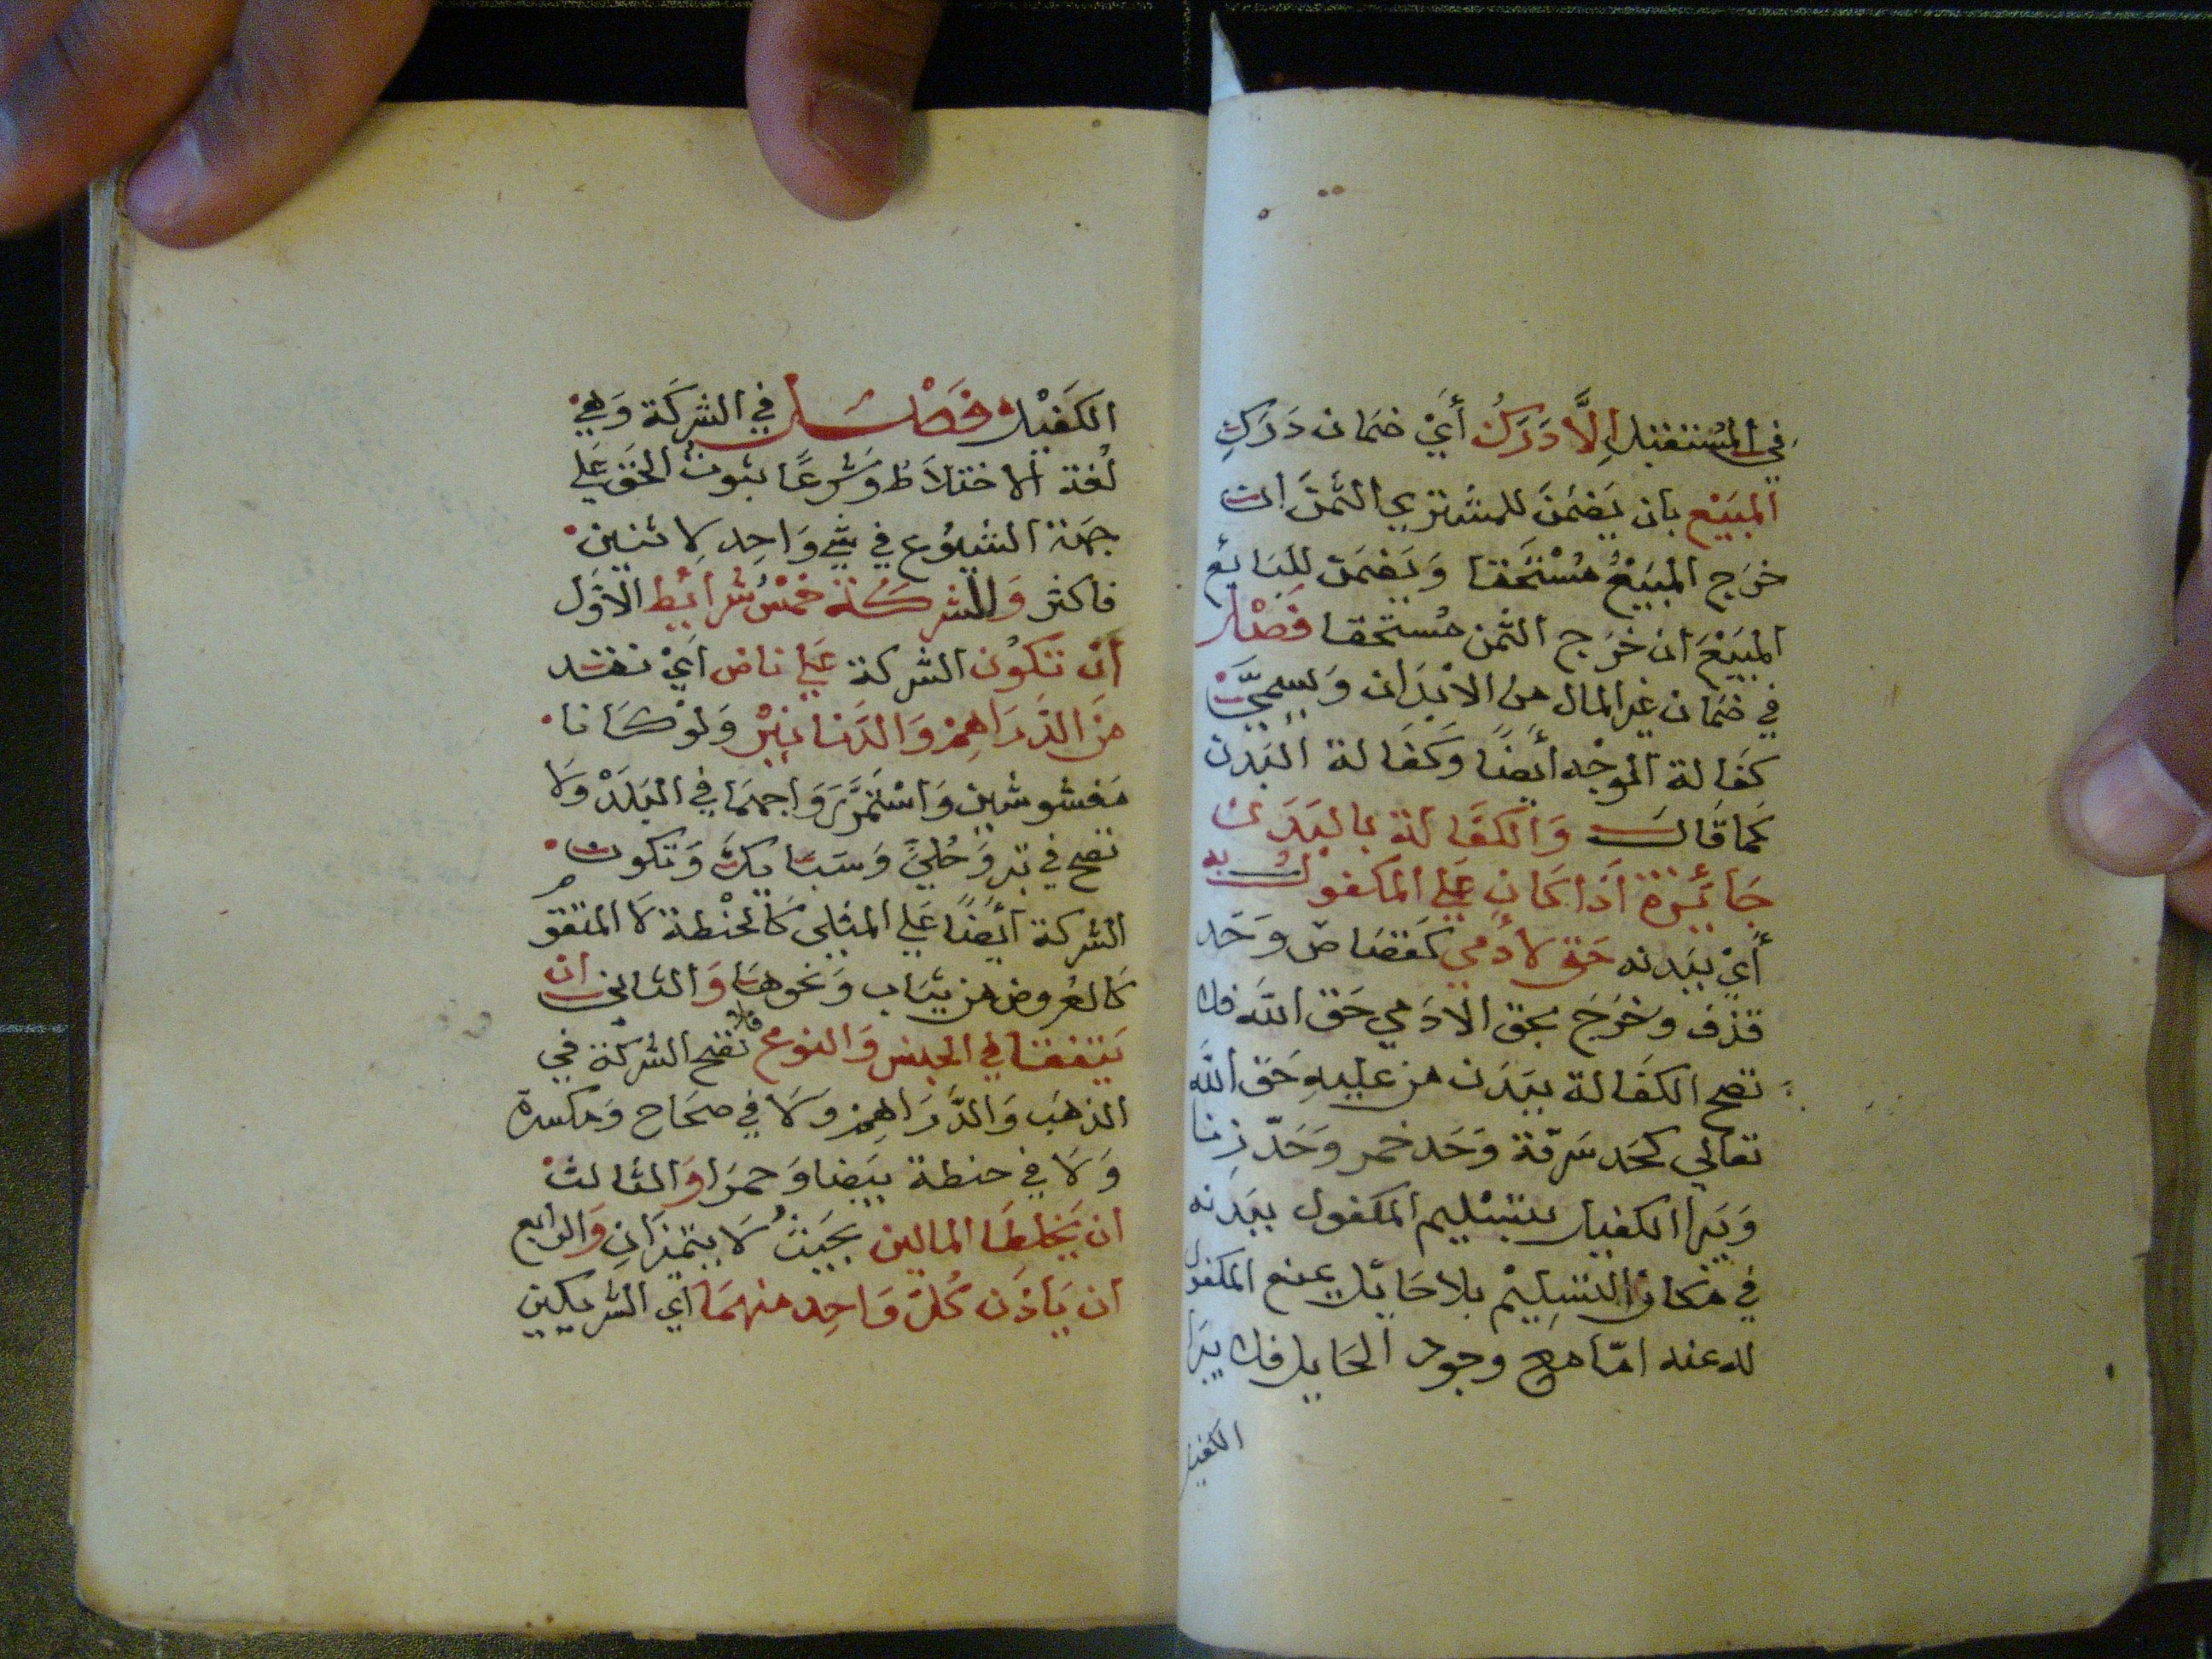 في المُستقبل إلَّا دَرَكُ أَيْ ضمَان دَرَكِ
المبَيْع بان يَضمَنَ للمشتري الثمَنَ ان
خرَج المبَيْعُ مُسْتَحَقا وَيَضمَن للبَائع
المبَيْعَ ان خرَج الثمن مُستحَقا فَصْل
في ضمَان غير المال من الابْدَان وَيسمىَّ
كفَالة الموجْه أيضًا وكَفَالة البَدن
كمَا قَالَ وَالكفَالة بالبَدَن
جَائزة اذا كَان عَلى المكفول به
أَيْ ببَدنه حَق لادَمي كقصَاص وحَد
قذف وخَرَجَ بحق الادَمي حَق الله فلا
تصح الكفَالة ببَدَن من عليهِ حَق الله
تعالي كحَد سَرقة وَحَد خمر وَحَدّ زنا
وَيَبرا الكفيل بتسْلِيم المكفول ببَدَنه
في مَكان التسْلِيْم بلا حَائل يمنع المكفول
له عنه امّا مع وجود الحَايل فلا يبَرا
الكفيل
الكَفيْل فَصْل في الشركَة وَهيَ
لُغة الاختلاَط وَشَرعًا ثبُوتُ الحَق عَلي
جهَة الشيُوع في شيْ وَاحِد لِاثنين
فاكثر وَللشركَة خمْسُ شَرائِط الاوَّل
أنْ تكوُن الشركة عَلى ناض أيْ نقد
مِنَ الدَّرَاهِمْ وَالدَّنانِيْر وَلوْ كَانا
مَغشوشين وَاسْتمَرَّ رَوَاجهمَا في البَلَدْ وَلا
تصح في تبر وَحُليّ وَسَبَايِكَ وَتكون
الشركة أيضًا عَلي المثلي كَالحْنطة لَا المتقوم
كَالعُروض من ثيَاب وَنحوهَا وَالثاني ان
يَتفقَا في الجنس وَالنوع فلا تصح الشركَة في
الذهَب وَالدَّرَاهِم وَلَا في صحَاح وَمكسرة
وَلَا في حنطة بيَضا وَحمرَا وَالثالث
ان يَخلِطَا المالين بحَيْثُ لَا يتميزَانِ وَالرابع
ان يَاذَن كُلّ وَاحِد منهمَا أي الشريكين